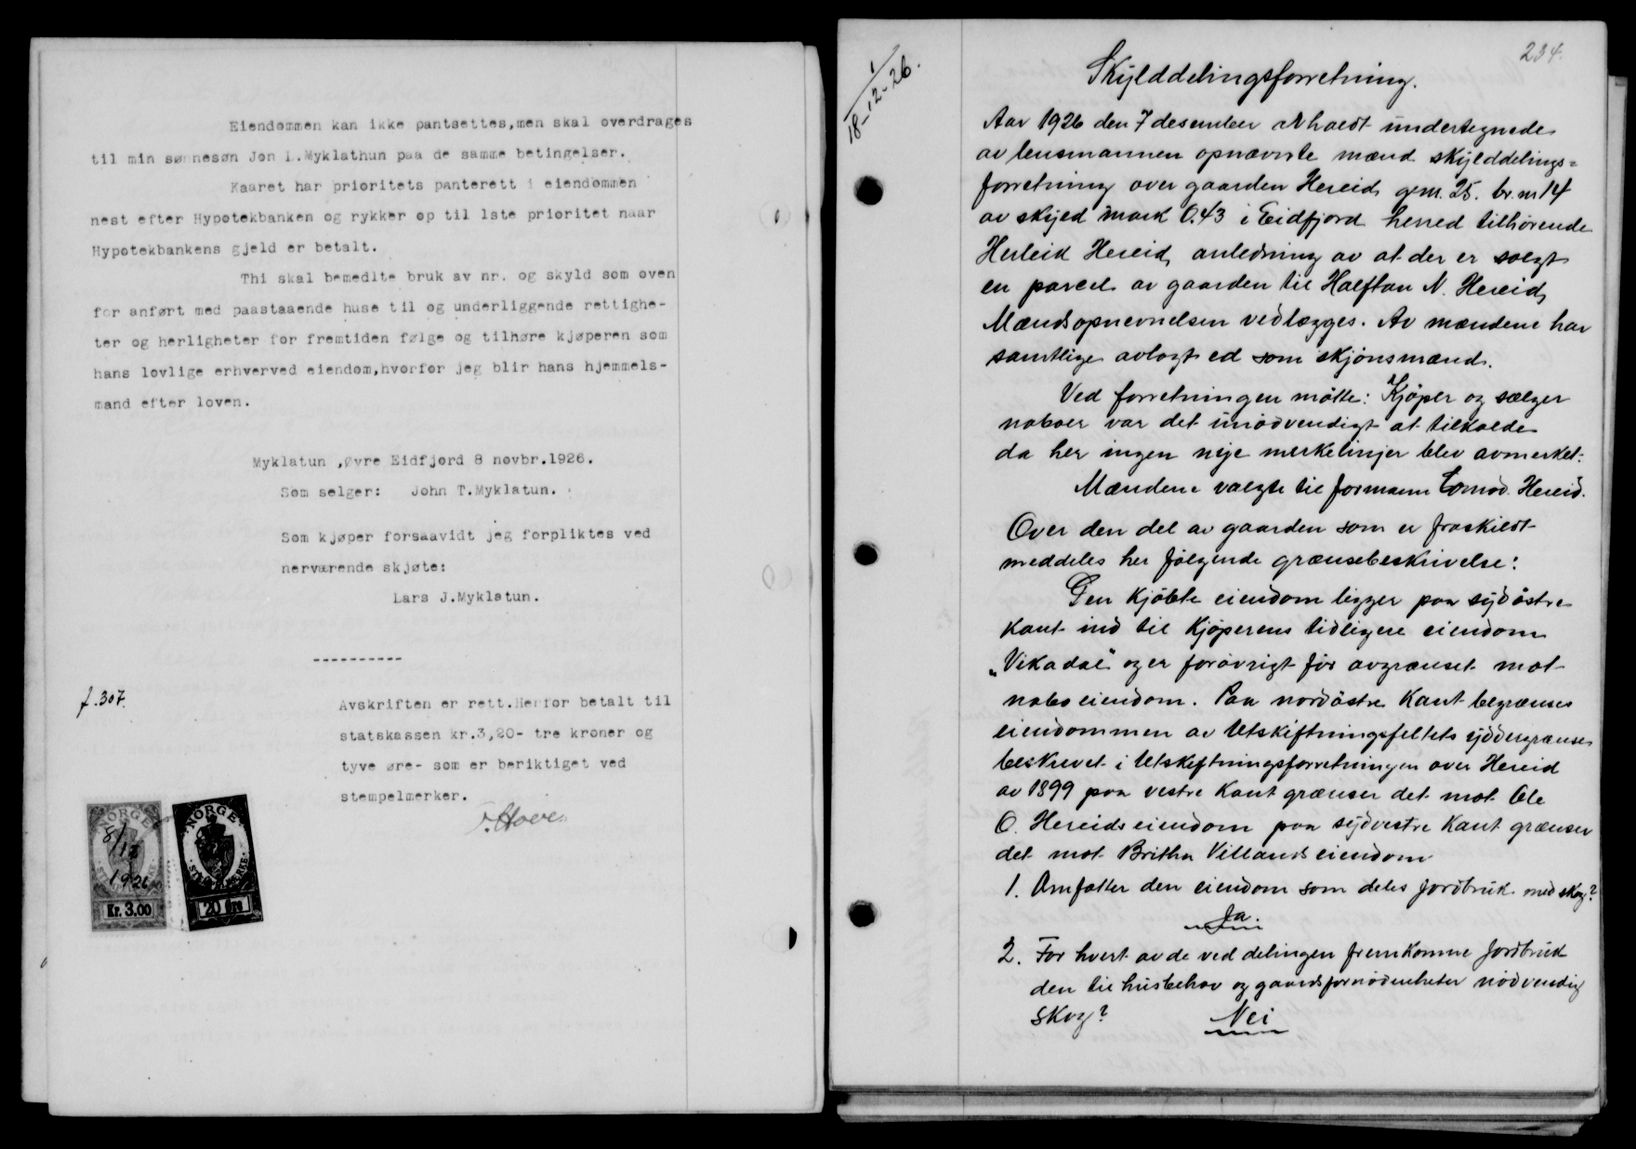 Eiendommen kan ikke pantsettes,men skal overdrages
til min sønnesøn Jon L.Myklathun paa de samme betingelser.
Kaaret har prioritets panterett i eiendommen
nest efter Hypotekbanken og rykker op til 1ste prioritet naar
Hypotekbankens gjeld er betalt.
Thi skal bemedlte bruk av nr. og skyld som oven
for anført med paastaaende huse til og underliggende rettighe-
ter og herligheter for fremtiden følge og tilhøre kjøperen som
hans lovlige erhverved eiendom,hvorfor jeg blir hans hjemmels-
mand efter loven.
Myklatun ,Øvre Eidfjord 8 novbr.1926.
Som selger: John T.Myklatun.
Som kjøper forsaavidt jeg forpliktes ved
nerværende skjøte:
Lars J.Myklatun.
----------
f.307.
Avskriften er rett.Herfor betalt til
statskassen kr.3,20- tre kroner og
tyve øre- som er beriktiget ved
stempelmerker.
NORGE
8/12
1926
Kr. 3.00
NORGE
STEMPELMERKE
20 Øre
234.
1/18-12-26.
Skylddelingsforretning.
Aar 1926 den 7 desember avholdt undertegnede
av lensmannen opnævnte mænd skylddelings=
forretning over gaarden Hereid gnr. 25. br. nr 14
av skyld mark 0.43 i Eidfjord herred tilhørende
Herleik Hereid anledning av at der er solgt
en parcel av gaarden til Halftan N. Hereid
Mændsopnevnelsen vedlægges. Av mændene har
samtlige avlagt ed som skjönsmænd.
Ved forretningen møtte: Kjøper og sælger
naboer var det unødvendigt at tilkalde
da her ingen nye merkelinjer blev avmerket.
Mændene valgte til formann Hereid.
Over den del av gaarden som er fraskildt
meddeles her følgende grænsebeskrivelse:
Den kjøbte eiendom ligger paa sydöstre
kant ind til kjøperens tidligere eiendom
"Vikadal" og er forøvrigt før avgrænset mot
naboeiendom. Paa nordöstre kant begrænses
eiendommen av Utskiftningsfeltets ydergrænse
beskrevet i Utskiftningsforretningen over Hereid
av 1899 paa vestre kant grænser det mot Ole
O. Hereids eiendom paa sydvestre kant grænser
det mot Britha Villands eiendom
1. Omfatter den eiendom som deles jordbruk med skog?
Ja.
2. Før hvert av de ved delingen fremkomne jordbruk
den til husbehov og gaardsfornødenheter nødvendig
skog? Nei